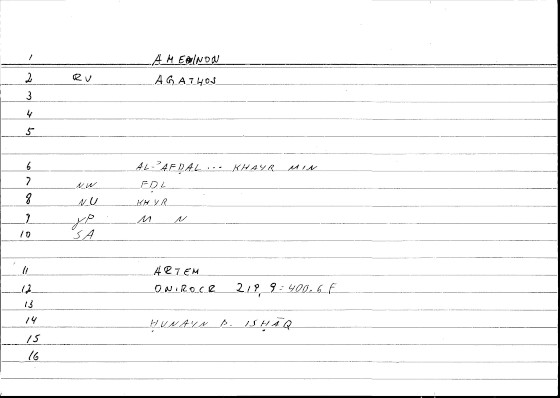 1 AMEINON
2 RU AGATHOS
3
4
5
6 AL-ʾAFḌAL ... KHAYR MIN
7 NW FḌL
8 NU KHYR
9 yP M N
10 SA
11 ARTEM
12 ONIROCR 219, 9 = 400.6 F
13
14 ḤUNAYN B. ISḤĀQ
15
16